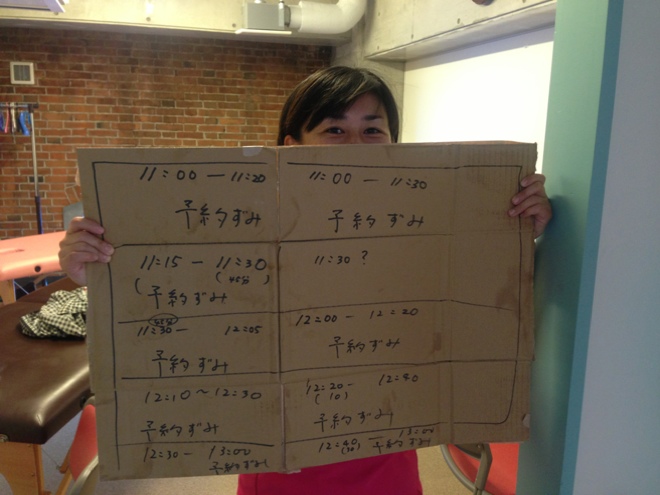 11:00 — 11:20
予約ずみ
11:15 — 11:30
予約ずみ
11:30 — 12:05
予約ずみ
12:10〜12:30
予約ずみ
12:30 — 13:00
予約ずみ
11:00 — 11:30
予約ずみ
11:30 ?
12:00 — 12:20
予約ずみ
12:20 — 12:40
(10)
予約ずみ
12:40 — 13:00
予約ずみ